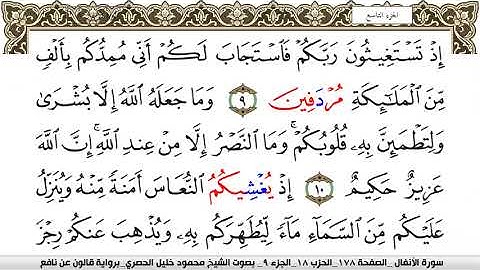 الجزء التاسع
إِذْ تَسْتَغِيثُونَ رَبَّكُمْ فَاسْتَجَابَ لَكُمْ أَنِّي مُمِدُّكُم بِأَلْفٍ
مِّنَ الْمَلَائِكَةِ مُرْدَفِينَ ٩ وَمَا جَعَلَهُ اللَّهُ إِلَّا بُشْرَىٰ
وَلِتَطْمَئِنَّ بِهِ قُلُوبُكُمْ ۚ وَمَا النَّصْرُ إِلَّا مِنْ عِندِ اللَّهِ ۚ إِنَّ اللَّهَ
عَزِيزٌ حَكِيمٌ ١٠ إِذْ يُغْشِيكُمُ النُّعَاسَ أَمَنَةً مِّنْهُ وَيُنَزِّلُ
عَلَيْكُم مِّنَ السَّمَاءِ مَاءً لِّيُطَهِّرَكُم بِهِ وَيُذْهِبَ عَنكُمْ رِجْزَ
سورة الأنفال _الصفحة ١٧٨_ الحزب ١٨_الجزء ٩_ بصوت الشيخ محمود خليل الحصري_برواية قالون عن نافع